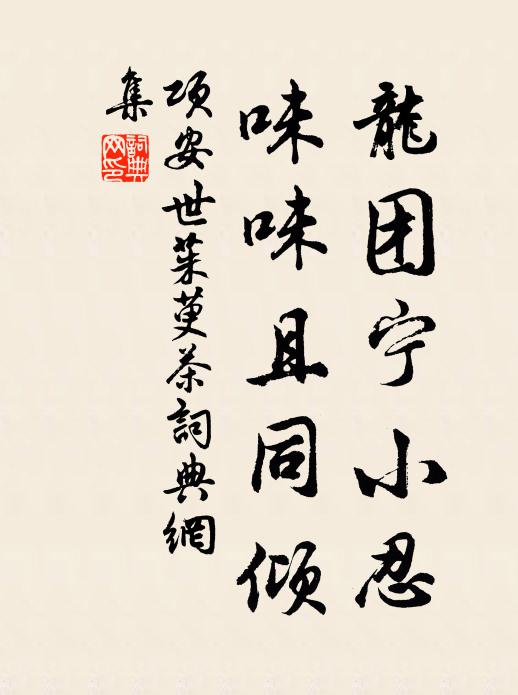 龍团宁小忍
味味且同倾
项安世茱萸茶詞典網
集
詞典網印